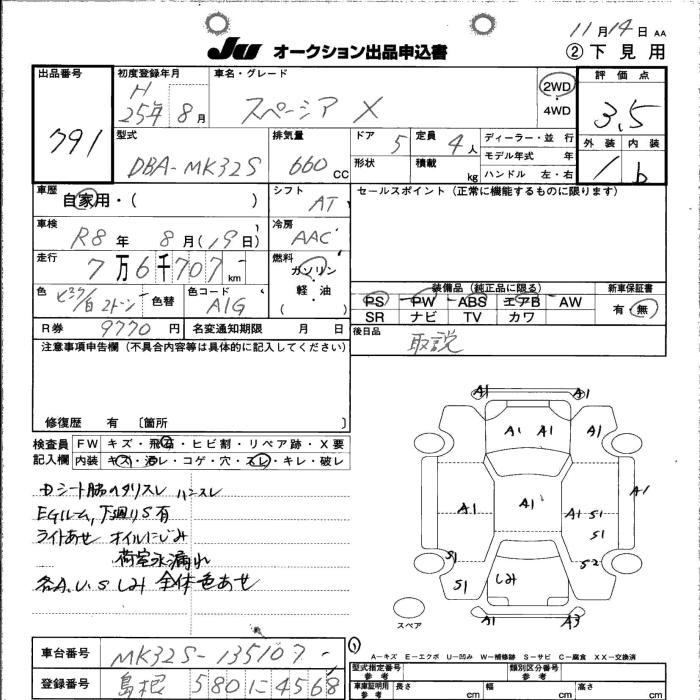 11月14日 AA
JU オークション出品申込書
②下見用
出品番号
791
初度登録年月
H
25年 8月
車名・グレード
スペーシア X
2WD
4WD
評価点
3.5
外装 内装
1 b
型式
DBA-MK32S
排気量
660 CC
ドア 5
定員 4人
形状
積載 kg
ディーラー・並行
モデル年式 年
ハンドル 左・右
車歴
自家用・( )
シフト
AT
セールスポイント(正常に機能するものに限ります)
車検
R8年 8月(19日)
冷房
AAC
走行
7万6千707km
燃料
ガソリン
軽・油
( )
色
ピンク/白 2トーン
色替
色コード
A1G
装備品(純正品に限る)
PS PW ABS エアB AW
SR ナビ TV カワ
新車保証書
有・無
R券 9770円
名変通知期限 月 日
後日品
取説
注意事項申告欄(不具合内容等は具体的に記入してください)
修復歴 有 〔箇所 〕
検査員記入欄
FW キズ・飛石・ヒビ割・リペア跡・X要
内装 キズ・汚レ・コゲ・穴・スレ・キレ・破レ
Dシート脇ヘタリスレ ハンスレ
EGルーム,下廻りS有
ライトあせ オイルにじみ
荷室水漏れ
各A.U.Sしみ 全体色あせ
A1 A1
A1 A1 A1
A1
A1 A1 A1 S1
S1
S1 S2
S1 しみ
A1 A3
スペア
A-キズ E-エクボ U-凹み W-補修跡 S-サビ C-腐食 XX-交換済
車台番号 MK32S-135107
登録番号 島根 580に4568
型式指定番号
参考
類別区分番号
参考
車庫証明用
参考
長さ cm 幅 cm 高さ cm